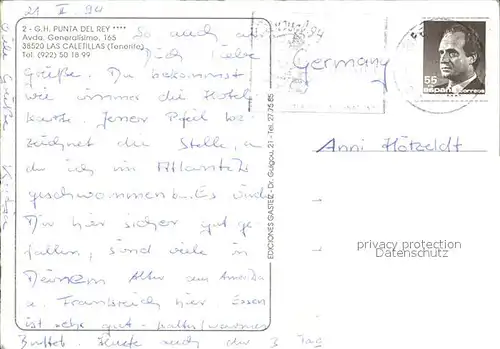 21. II. 94
2 - G.H. PUNTA DEL REY ****
Avda. Generalísimo, 165
38520 LAS CALETILLAS (Tenerife)
Tel. (922) 50 18 99
So auch an
Dich liebe
Grüße. Du bekommst
wie immer die Hotel-
karte. Jener Pfeil be-
zeichnet die Stelle, a
du ich im Atlantik
geschwommen bin. Es würde
Dir hier sicher gut ge-
fallen, sind viele in
Deinem Alter aus Amerika
u. Frankreich hier. Essen
ist sehr gut - kaltes/warmes
Buffet. Heute auch der 3. Tag
Viele Grüße
EDICIONES GASTEB - Dr. Guigou, 21 - Tel. 27 75 85
Germany
55
ESPAÑA CORREOS
Anni Hötzeldt
privacy protection
Datenschutz